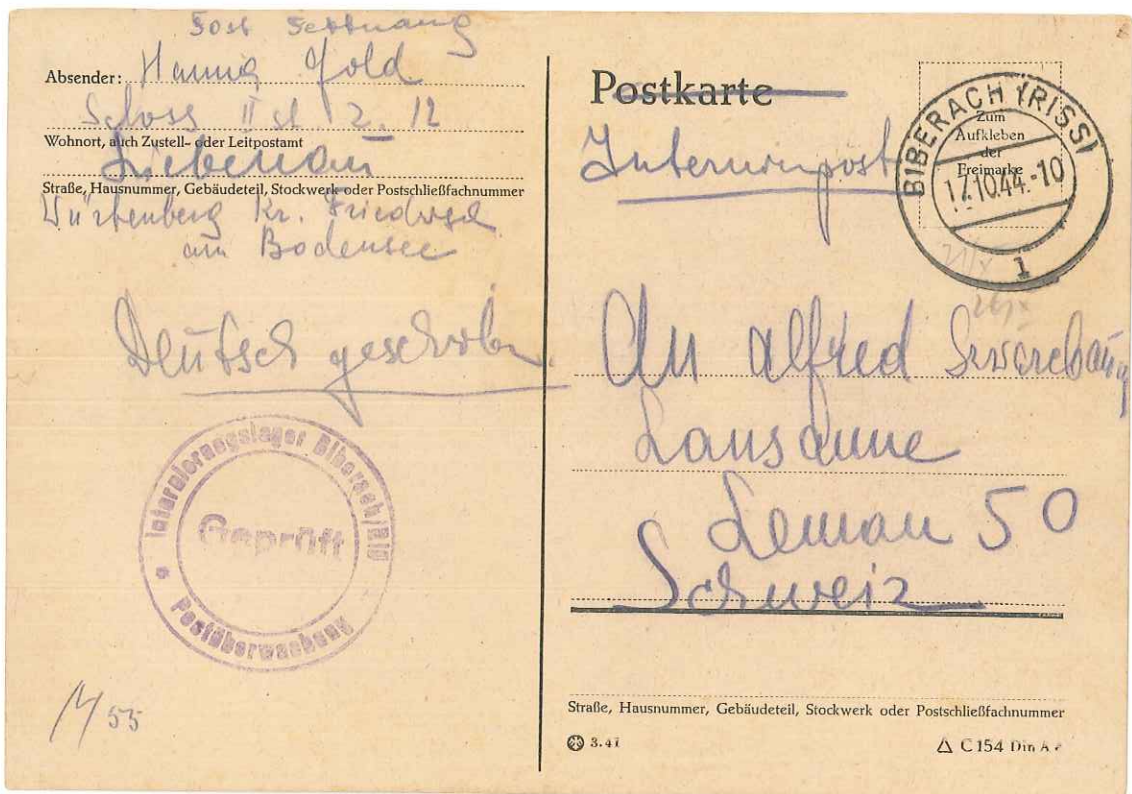 Post Tettnang
Absender: Hanna Gold
Schloss II st Z. 12
Wohnort, auch Zustell- oder Leitpostamt
Liebenau
Straße, Hausnummer, Gebäudeteil, Stockwerk oder Postschließfachnummer
Würtenberg Kr. Friedrich
am Bodensee
Deutsch geschrieben.
Internierungslager Biberach/Riß
Geprüft
Postüberwachung
55
Postkarte
Internierpost
Zum
Aufkleben
der
Freimarke
BIBERACH (RISS)
17.10.44.-10
1
An Alfred Szwarcbaum
Lausanne
Leman 50
Schweiz
Straße, Hausnummer, Gebäudeteil, Stockwerk oder Postschließfachnummer
3.41
C 154 Din A